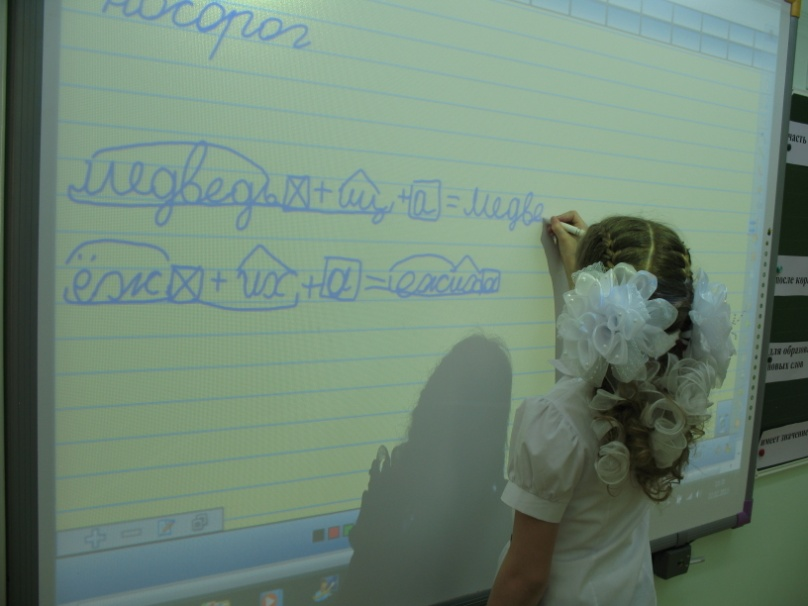 носорог
медведь☒ + иц + а = медве
ёж☒ + их + а = ежиха
часть
после кор
для образова
новых слов
имеет значение